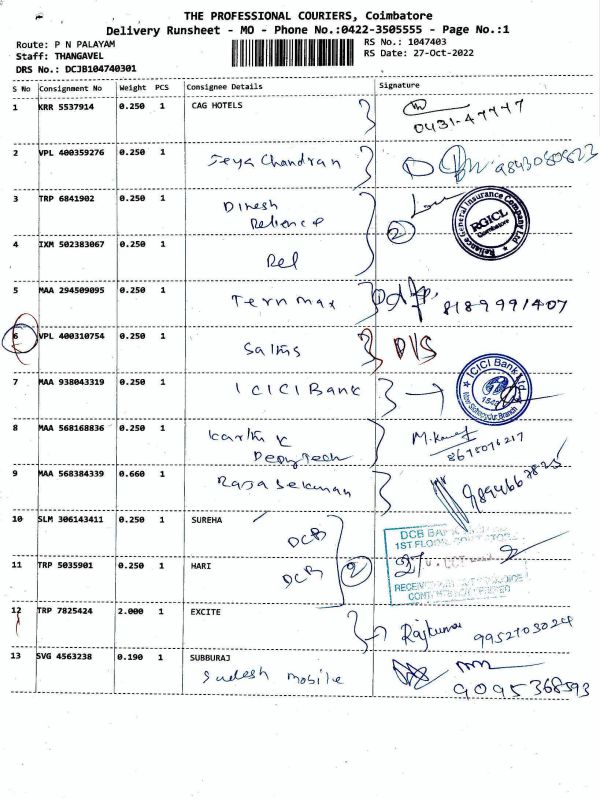 THE PROFESSIONAL COURIERS, Coimbatore
Delivery Runsheet - MO - Phone No.:0422-3505555 - Page No.:1
Route: P N PALAYAM
RS No.: 1047403
Staff: THANGAVEL
RS Date: 27-Oct-2022
DRS No.: DCJB104740301
S No Consignment No Weight PCS Consignee Details Signature
1 KRR 5537914 0.250 1 CAG HOTELS
0431-47747
2 VPL 400359276 0.250 1 Jeya Chandran 9843080823
3 TRP 6841902 0.250 1 Dinesh
Relience
2
Reliance General Insurance Company Ltd
RGICL
Coimbatore
4 IXM 502383067 0.250 1 Rel
5 MAA 294509095 0.250 1 Tern max 8189991407
6 VPL 400310754 0.250 1 Salms D/S
7 MAA 938043319 0.250 1 ICICI Bank
ICICI Bank Ltd
Branch
8 MAA 568168836 0.250 1 Karthi K
8675076217
9 MAA 568384339 0.660 1 Rajasekaran 9894667825
10 SLM 306143411 0.250 1 SUREHA
DCB
DCB BANK
1ST FLOOR
11 TRP 5035901 0.250 1 HARI
DCB
2
12 TRP 7825424 2.000 1 EXCITE
Rajkumar 9952703024
13 SVG 4563238 0.190 1 SUBBURAJ
Sudesh mobile
9095368593